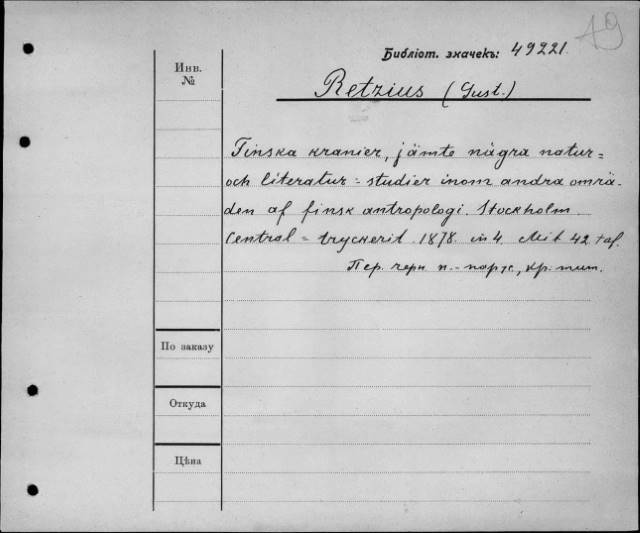 49
Библіот. значекъ: 49221.
Инв.
№
Retzius (Gust.)
Finska kranier, jämte några natur=
och literatur=studier inom andra områ=
den af finsk antropologi. Stockholm.
Central=tryckerit. 1878. in 4. Mit 42 taf.
Пер. черн п.-парус., кр. тит.
По заказу
Откуда
Цѣна